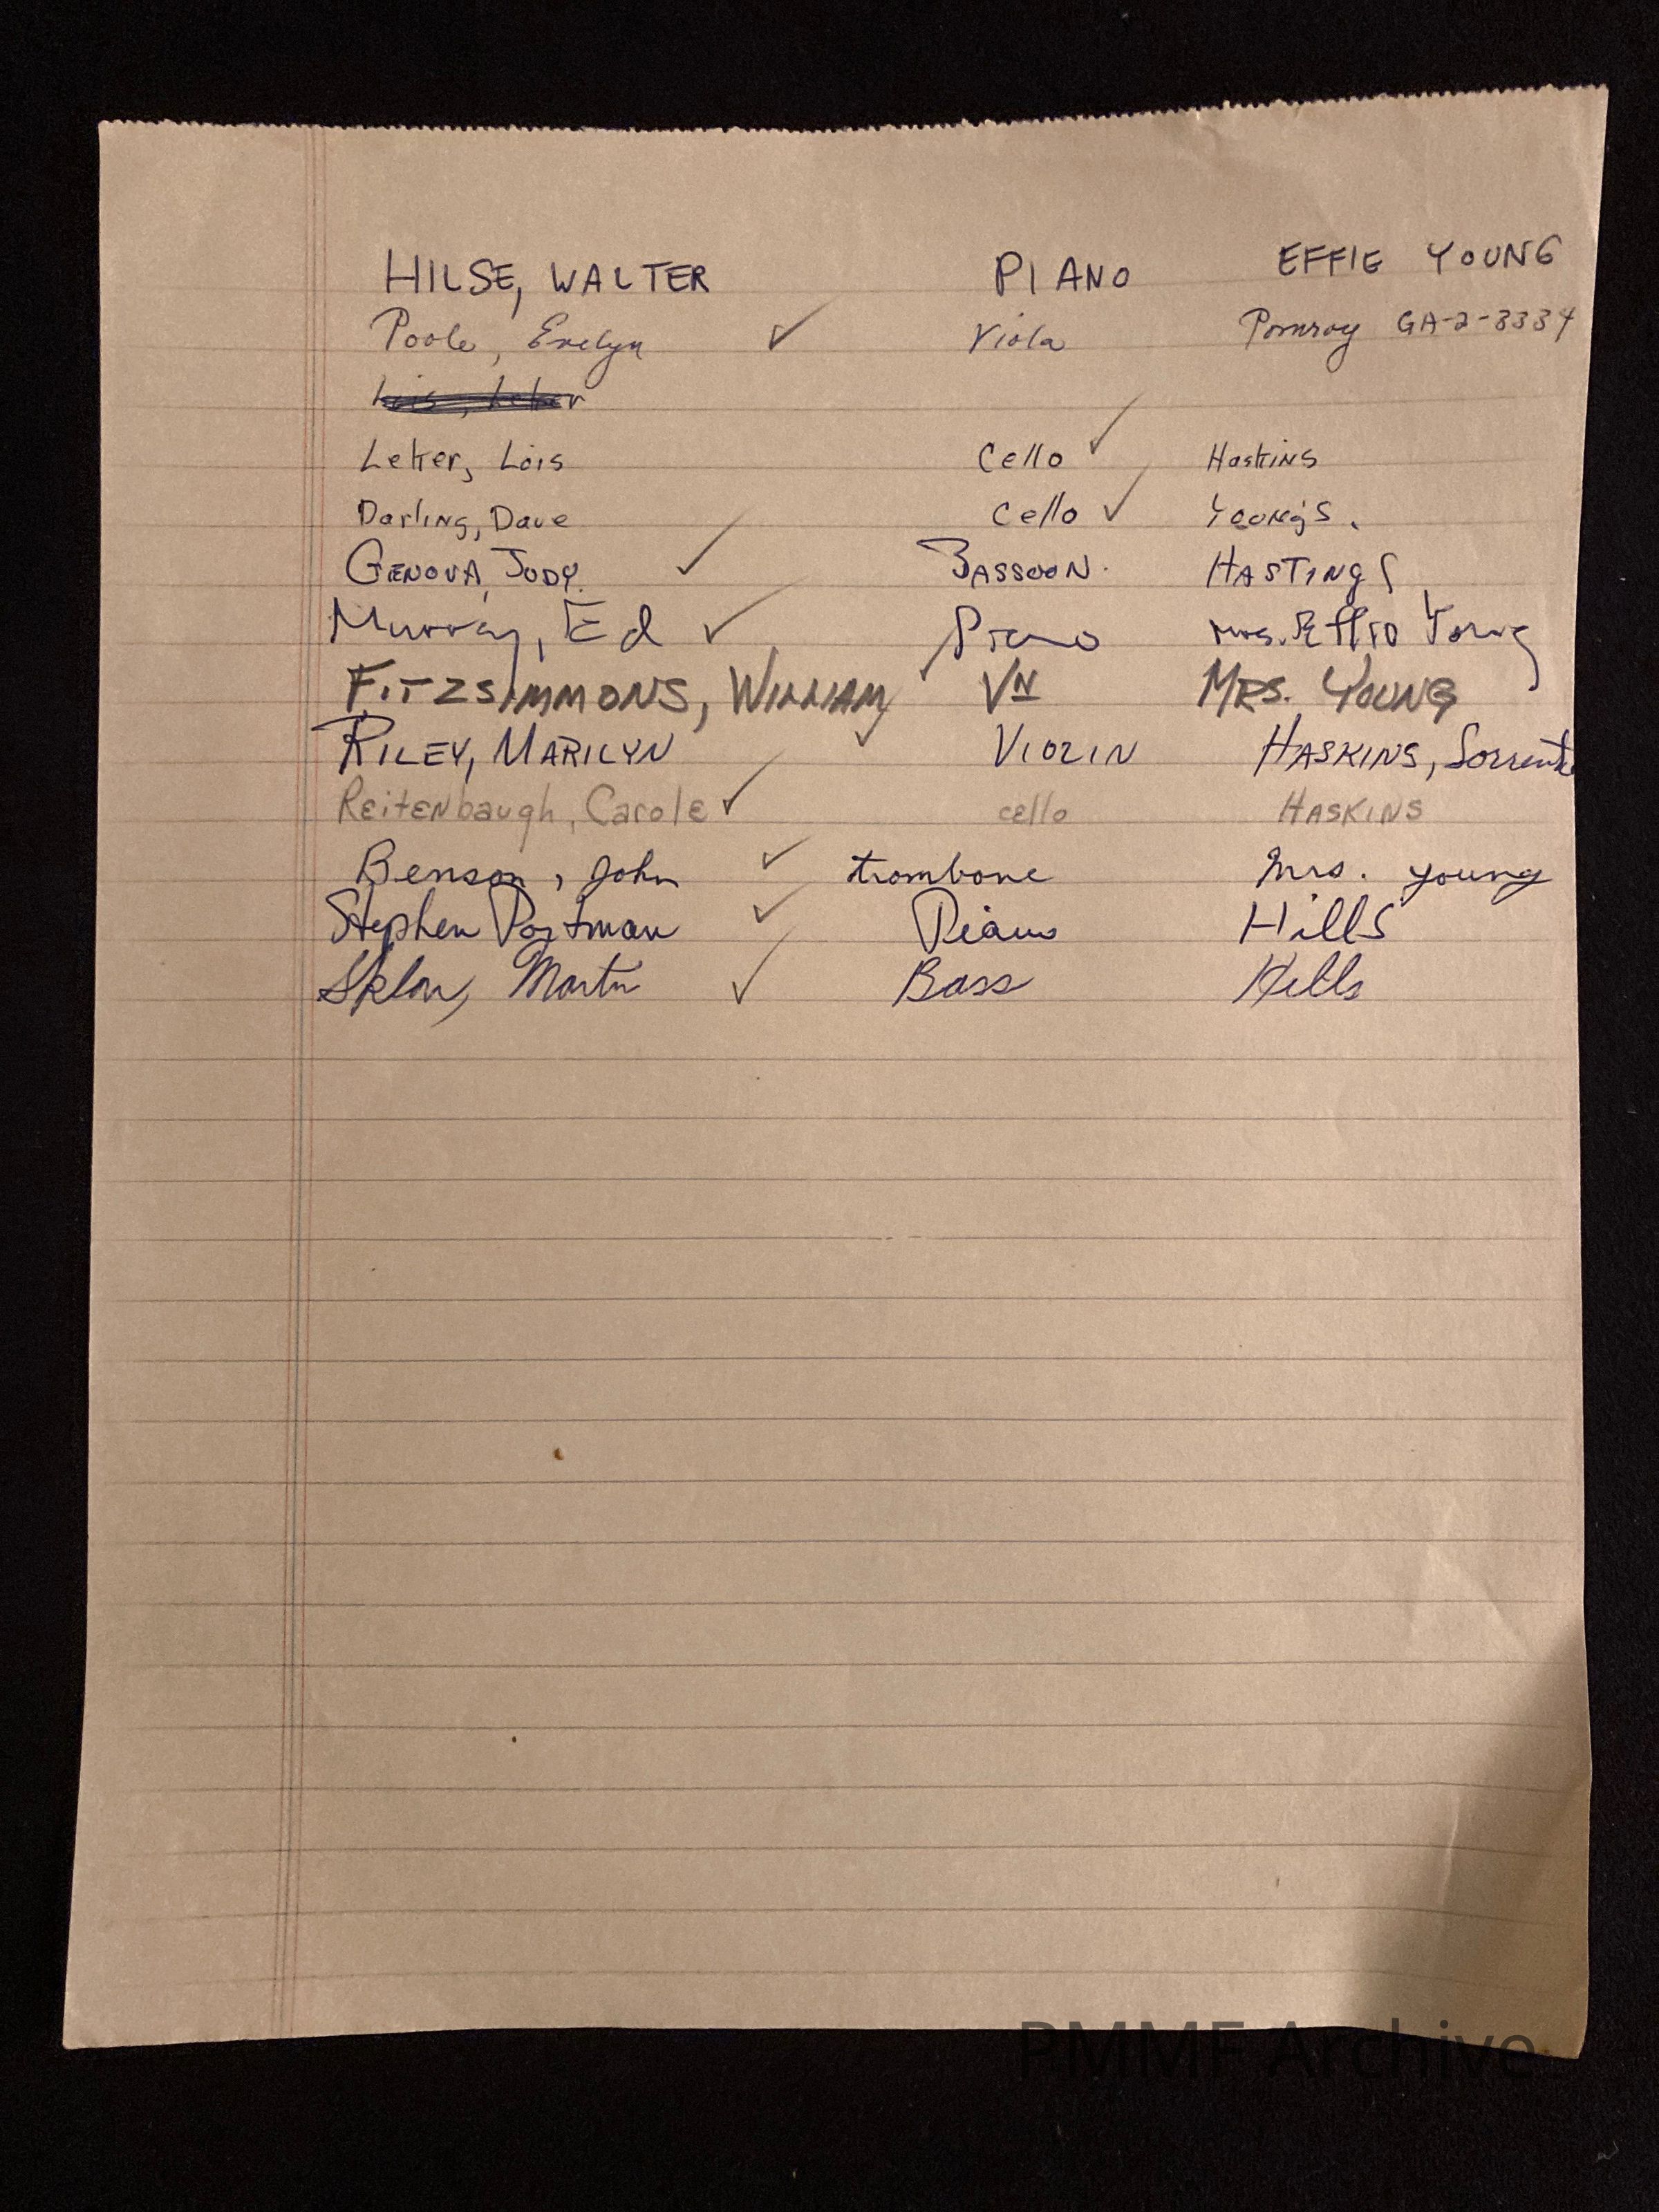 HILSE, WALTER PIANO EFFIE YOUNG
Poole, Evelyn ✓ Viola Pomroy GA-2-3334
Lois, Leker
Leker, Lois Cello ✓ Haskins
Darling, Dave Cello ✓ Young's.
GENOVA, JUDY. ✓ BASSOON. HASTINGS
Murray, Ed ✓ Piano Mrs. Effie Young
FITZSIMMONS, WILLIAM ✓ VN MRS. YOUNG
RILEY, MARILYN ✓ VIOLIN HASKINS,
Reitenbaugh, Carole ✓ cello HASKINS
Benson, John ✓ trombone Mrs. Young
Stephen Portman ✓ Piano Hills
Sklar, Martin ✓ Bass Hills
PMMF Archive